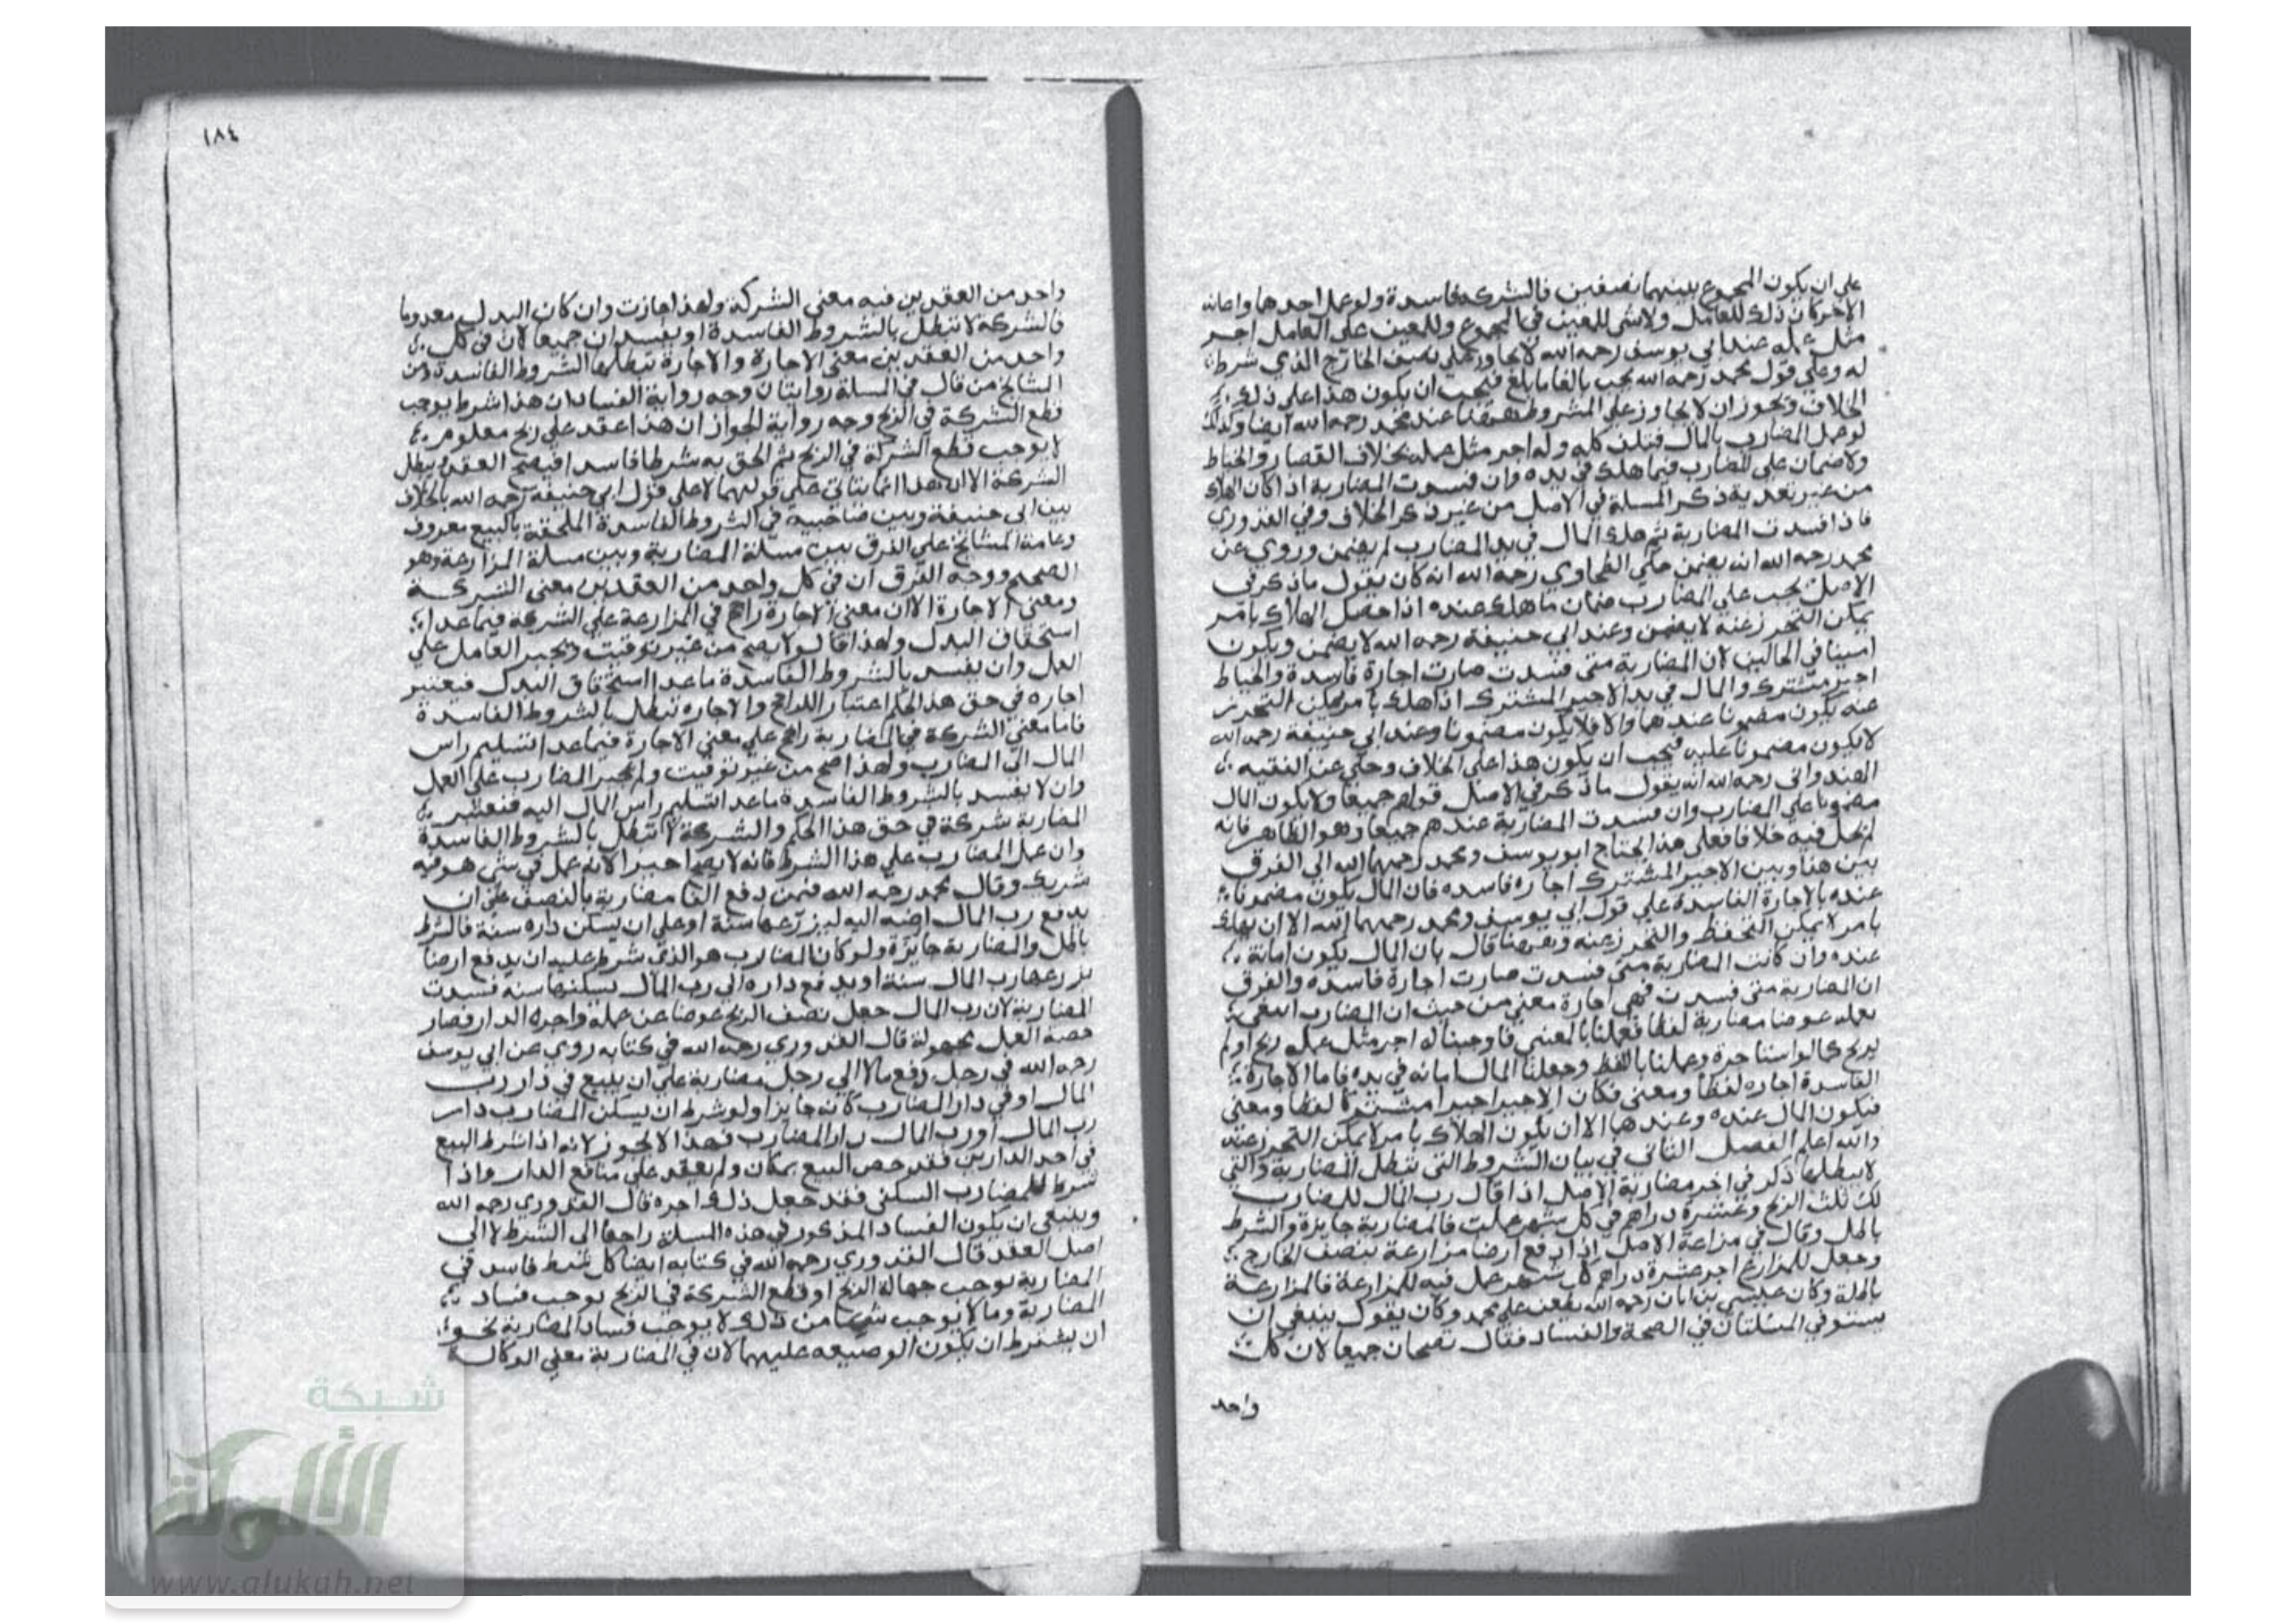 على ان يكون المجموع بينهما نصفين فالشركة فاسدة ولو عمل احدهما واعانه
الاخر كان ذلك للعامل ولاشى للمعين في المجموع وللمعين على العامل اجر
مثل عمله عند ابي يوسف رحمه الله لا يجاوز على نصف الخارج الذي شرط
له وعلى قول محمد رحمه الله يجب بالغا ما بلغ فيجب ان يكون هذا على ذلك
الخلاف ويجوز ان لا يجاوز على المشروط ههنا عند محمد رحمه الله ايضا وكذلك
لو عمل المضارب بالمال فتلف كله وله اجر مثل عمله بخلاف القصار والخياط
ولا ضمان على المضارب فيما هلك في يده وان فسدت المضاربة اذا كان الهلاك
من غير تعديه ذكر المسلة في الاصل من غير ذكر الخلاف وفي القدوري
فاذا فسدت المضاربة ثم هلك المال في يد المضارب لم يضمن وروي عن
محمد رحمه الله انه يضمن حكي الطحاوي رحمه الله انه كان يقول ما ذكر في
الاصل يجب على المضارب ضمان ما هلك عنده اذا حصل الهلاك بامر
يمكن التحرز عنه لا يضمن وعند ابي حنيفة رحمه الله لا يضمن ويكون
امينا في الحالين لان المضاربة متى فسدت صارت اجارة فاسدة والخياط
اجير مشترك والمال في يد الاجير المشترك اذا هلك بامر يمكن التحرز
عنه يكون مضمونا عندهما والا فلا يكون مضمونا وعند ابي حنيفة رحمه الله
لا يكون مضمونا عليه فيجب ان يكون هذا على الخلاف وحكي عن الفقيه
الهندواني رحمه الله انه يقول ما ذكر في الاصل قولهم جميعا ولا يكون المال
مضمونا على المضارب وان فسدت المضاربة عندهم جميعا وهو الظاهر فانه
لم يحك فيه خلافا فعلى هذا يحتاج ابو يوسف ومحمد رحمهما الله الى الفرق
بين هذا وبين الاجير المشترك اجارة فاسده فان المال يكون مضمونا
عنده بالاجارة الفاسدة على قول ابي يوسف ومحمد رحمهما الله الا ان يهلك
بامر لا يمكن التحفظ والتحرز عنه وههنا قال بان المال يكون امانة
عنده وان كانت المضاربة متى فسدت صارت اجارة فاسده والفرق
ان المضاربة متى فسدت فهي اجارة معنى من حيث ان المضارب ابتغى
بعمله عوضا مضاربة لفظا فعملنا بالمعنى فاوجبنا له اجر مثل عمله ربح او لم
يربح كما لو استاجره وعملنا باللفظ وجعلنا المال امانه في يده فاما الاجارة
الفاسدة اجاره لفظا ومعنى فكان الاجير اجيرا مشتركا لفظا ومعنى
فيكون المال عنده وعندهما الا ان يكون الهلاك بامر لا يمكن التحرز عنه
والله اعلم الفصل الثاني في بيان الشروط التي تبطل المضاربة والتي
لا تبطلها ذكر في اخر مضاربة الاصل اذا قال رب المال للمضارب
لك ثلث الربح وعشرة دراهم في كل شهر عملت فالمضاربة جايزة والشرط
باطل وقال في مزارعة الاصل اذا دفع ارضا مزارعة بنصف الخارج
وجعل للمزارع اجر عشرة دراهم كل شهر عمل فيه للمزارعة فالمزارعة
باطلة وكان عيسى بن ابان رحمه الله يطعن على محمد وكان يقول ينبغي ان
يستوي المسئلتان في الصحة والفساد فقال تصحان جميعا لان كل
واحد
١٨٤
واحد من العقدين فيه معنى الشركة ولهذا جازت وان كان البدل معدوما
فالشركة لا تبطل بالشروط الفاسدة او يفسدان جميعا لان في كل
واحد من العقدين معنى الاجارة والاجارة تبطلها الشروط الفاسدة ومن
المشايخ من قال في المسلة روايتان وجه رواية الفساد ان هذا شرط يوجب
قطع الشركة في الربح وجه رواية الجواز ان هذا عقد على ربح معلوم
لا يوجب قطع الشركة في الربح ثم الحق به شرطا فاسدا فيصح العقد ويبطل
الشركة الا ان هذا انما يتاتى على قولهما لا على قول ابي حنيفة رحمه الله بالخلاف
بين ابي حنيفة وبين صاحبيه في الشروط الفاسدة الملحقة بالبيع معروف
وعامة المشايخ على الفرق بين مسئلة المضاربة وبين مسلة المزارعة وهو
الصحيح ووجه الفرق ان في كل واحد من العقدين معنى الشركة
ومعنى الاجارة الا ان معنى الاجارة راجح في المزارعة على الشركة فيما عدا
استحقاق البدل ولهذا قالوا لا يصح من غير توقيت ويجبر العامل على
العمل وان يفسد بالشروط الفاسدة ما عدا استحقاق البدل فيعتبر
اجاره في حق هذا الحكم اعتبار اللراجح والاجاره تبطل بالشروط الفاسدة
فاما معنى الشركة في المضاربة راجح على معنى الاجارة فيما عدا تسليم راس
المال الى المضارب ولهذا صح من غير توقيت ولم يجبر المضارب على العمل
وان لا يفسد بالشروط الفاسدة ما عدا تسليم راس المال اليه فتعتبر
المضاربة شركة في حق هذا الحكم والشركة لا تبطل بالشروط الفاسدة
وان عمل المضارب على هذا الشرط فانه لا يصير اجيرا لانه عمل في شى هو فيه
شريك وقال محمد رحمه الله فيمن دفع الفا مضاربة بالنصف على ان
يدفع رب المال ارضه اليه ليزرعها سنة او على ان يسكن داره سنة فالشرط
باطل والمضاربة جايزة ولو كان المضارب هو الذي شرط عليه ان يدفع ارضا
يزرعها رب المال سنة او يدفع داره الى رب المال يسكنها سنه فسدت
المضاربة لان رب المال جعل نصف الربح عوضا عن عمله واجره الدار فصار
حصة العمل مجهولة قال القدوري رحمه الله في كتابه روي عن ابي يوسف
رحمه الله في رجل دفع مالا الى رجل مضاربة على ان يبيع في دار رب
المال او في دار المضارب كان جايزا ولو شرط ان يسكن المضارب دار
رب المال او رب المال دار المضارب فهذا لا يجوز لانه اذا شرط البيع
في احد الدارين فقد خص البيع بمكان ولم يعقد على منافع الدار واذا
شرط للمضارب السكنى فقد جعل ذلك اجره قال القدوري رحمه الله
وينبغي ان يكون الفساد المذكور في هذه المسلة راجعا الى الشرط لا الى
اصل العقد قال القدوري رحمه الله في كتابه ايضا كل شرط فاسد في
المضاربة يوجب جهالة الربح او قطع الشركة في الربح يوجب فساد
المضاربة وما لا يوجب شيئا من ذلك لا يوجب فساد المضاربة نحو
ان يشترط ان يكون الوضيعه عليهما لان في المضاربة معنى الوكالة
شبكة
الألوكة
www.alukah.net